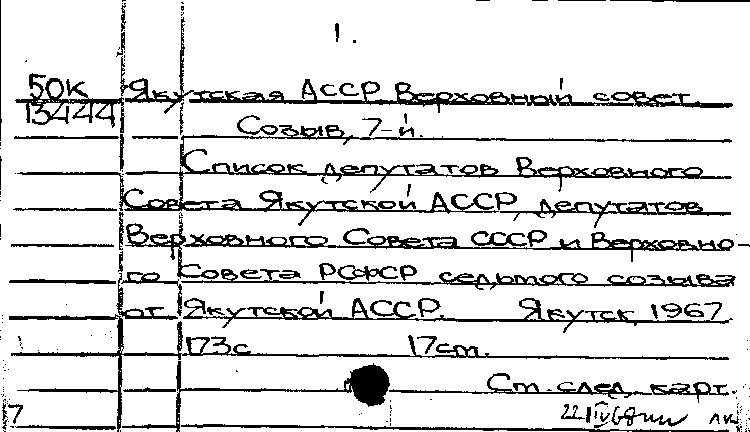 1.
50К Якутская АССР Верховный совет.
13444 Созыв, 7-й.
Список депутатов Верховного
Совета Якутской АССР, депутатов
Верховного Совета СССР и Верховно-
го Совета РСФСР седьмого созыва
от Якутской АССР. Якутск, 1967.
173с 17см.
См. след. карт.
7 22 IV 68